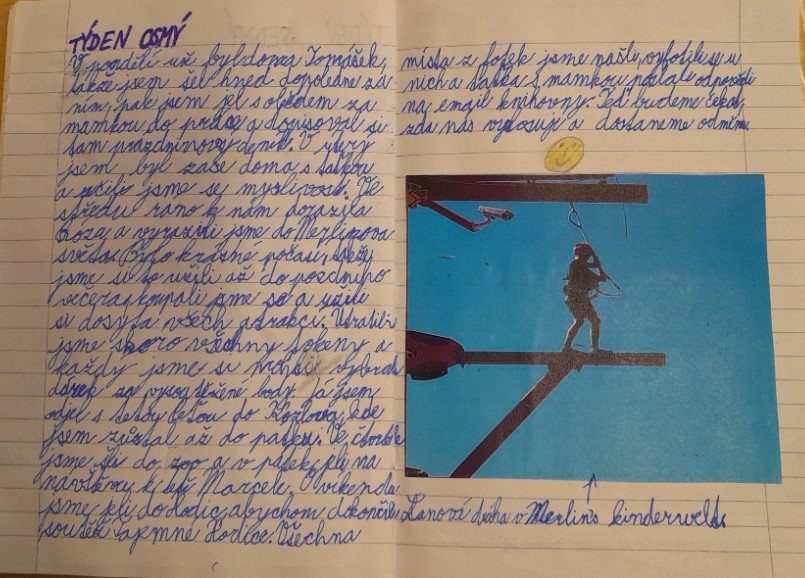 TÝDEN OSMÝ
V pondělí už byl doma Tomášek,
takže jsem šel hned dopoledne za
ním, pak jsem jel s obědem za
mamkou do práce a dopisoval si
tam prázdninový deník. V úterý
jsem byl zase doma s taťkou
a učili jsme se myslivost. Ve
středu ráno k nám dorazila
a vyrazili jsme do Merlinova
světa. Bylo krásné počasí, takže
jsme si to užili až do pozdního
večera, koupali jsme se a užili
si dosyta všech atrakcí. Utratili
jsme skoro všechny tokeny a
každý jsme si mohli vybrat
dárek za vysoutěžené body. Já jsem
odjel s tetou Beťou do Kozlova, kde
jsem zůstal až do pátku. Ve čtvrtek
jsme šli do zoo a v pátek jeli na
návštěvu k tetě Marcele. O víkendu
jsme jeli do Hodic, abychom dokončili
soutěž Tajemné Hodice. Všechna
místa z fotek jsme našli, vyfotili se u
nich a taťka s mamkou poslali odpovědi
na email knihovny. Teď budeme čekat,
zda nás vylosují a dostaneme odměnu.
Lanová dráha v Merlin's kinderwelt.